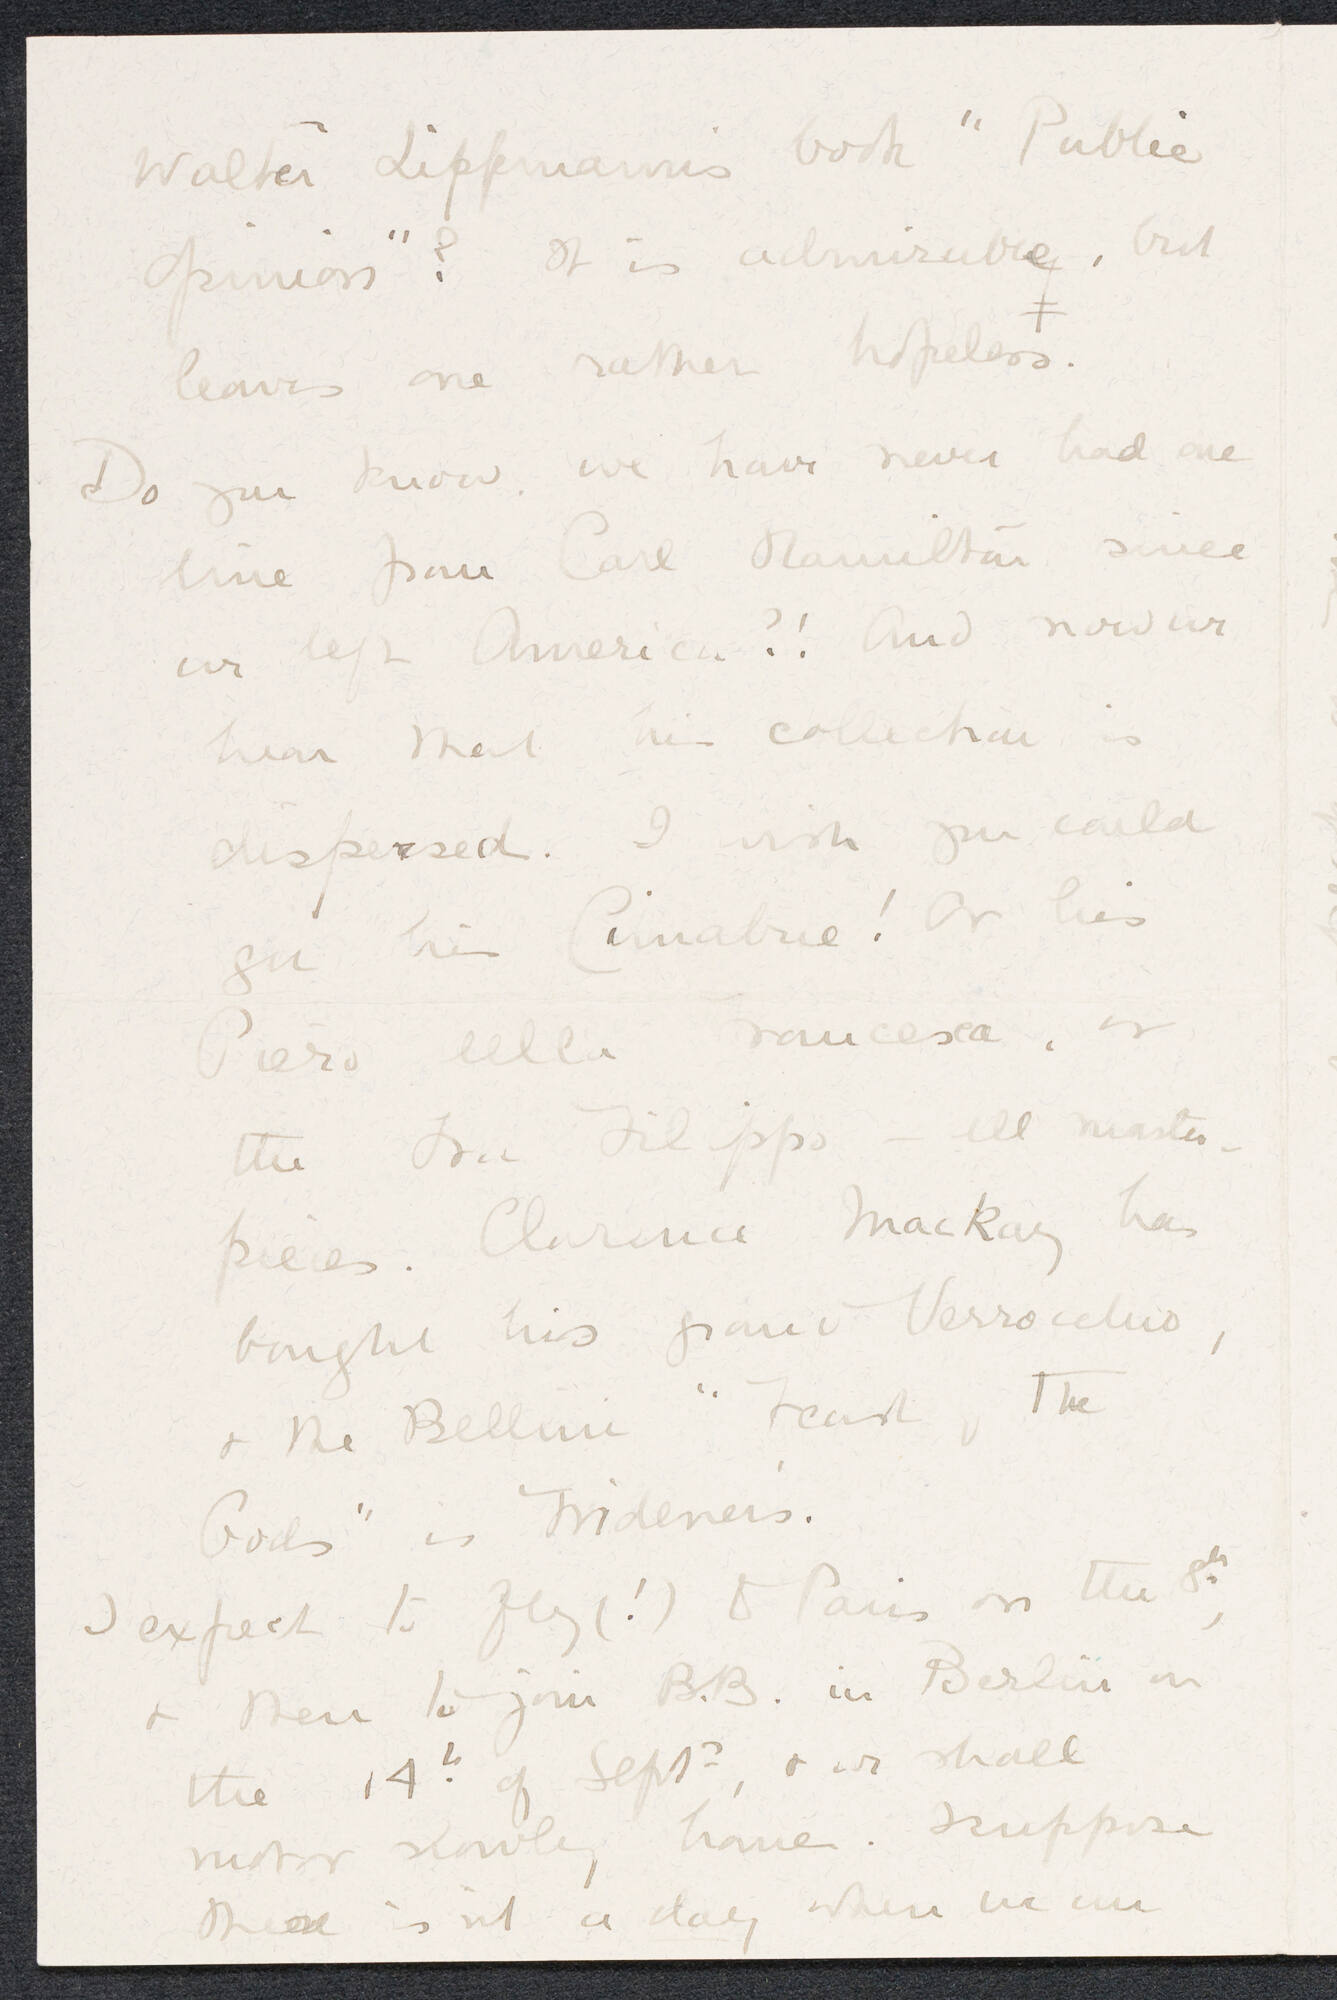 Walter Lippmann's book "Public
Opinion"? It is admirable, but
leaves one rather hopeless.
Do you know, we have never had one
line from Carl Hamilton since
we left America?! And now we
hear that his collection is
dispersed. I wish you could
get his Cimabue! Or his
Piero della Francesca, or
the Fra Filippo — all master-
pieces. Clarence Mackay has
bought his grand Verrocchio,
& the Bellini "Feast of The
Gods" is Widener's.
I expect to fly (!) to Paris on the 8th,
& then to join B.B. in Berlin on
the 14th of Sept, & we shall
motor slowly home. I suppose
there isn't a day when we are